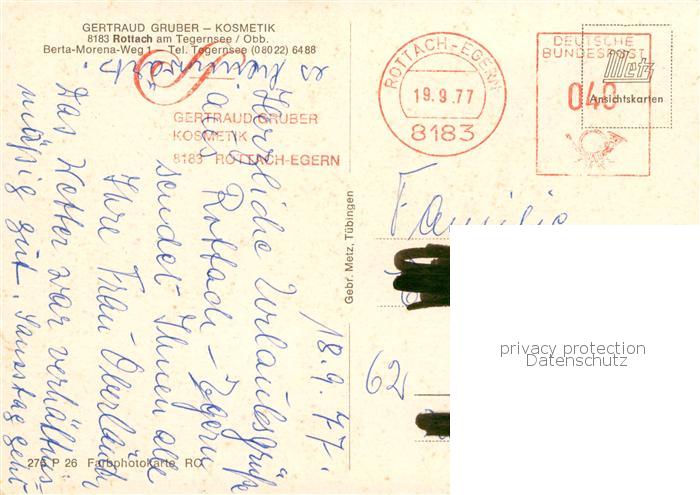 GERTRAUD GRUBER – KOSMETIK
8183 Rottach am Tegernsee / Obb.
Berta-Morena-Weg 1 – Tel. Tegernsee (08022) 6488
GERTRAUD GRUBER
KOSMETIK
8183 ROTTACH-EGERN
ROTTACH-EGERN
19.9.77
8183
DEUTSCHE
BUNDESPOST
040
Metz
Ansichtskarten
18.9.77.
Herzliche Urlaubsgrüße
aus Rottach-Egern
sendet Ihnen alle
Ihre Frau Oberländ
Das Wetter war verhältnis-
mäßig gut. Samstag geht
es
Gebr. Metz, Tübingen
Familie
62
privacy protection
Datenschutz
275 P 26 Farbphotokarte RO